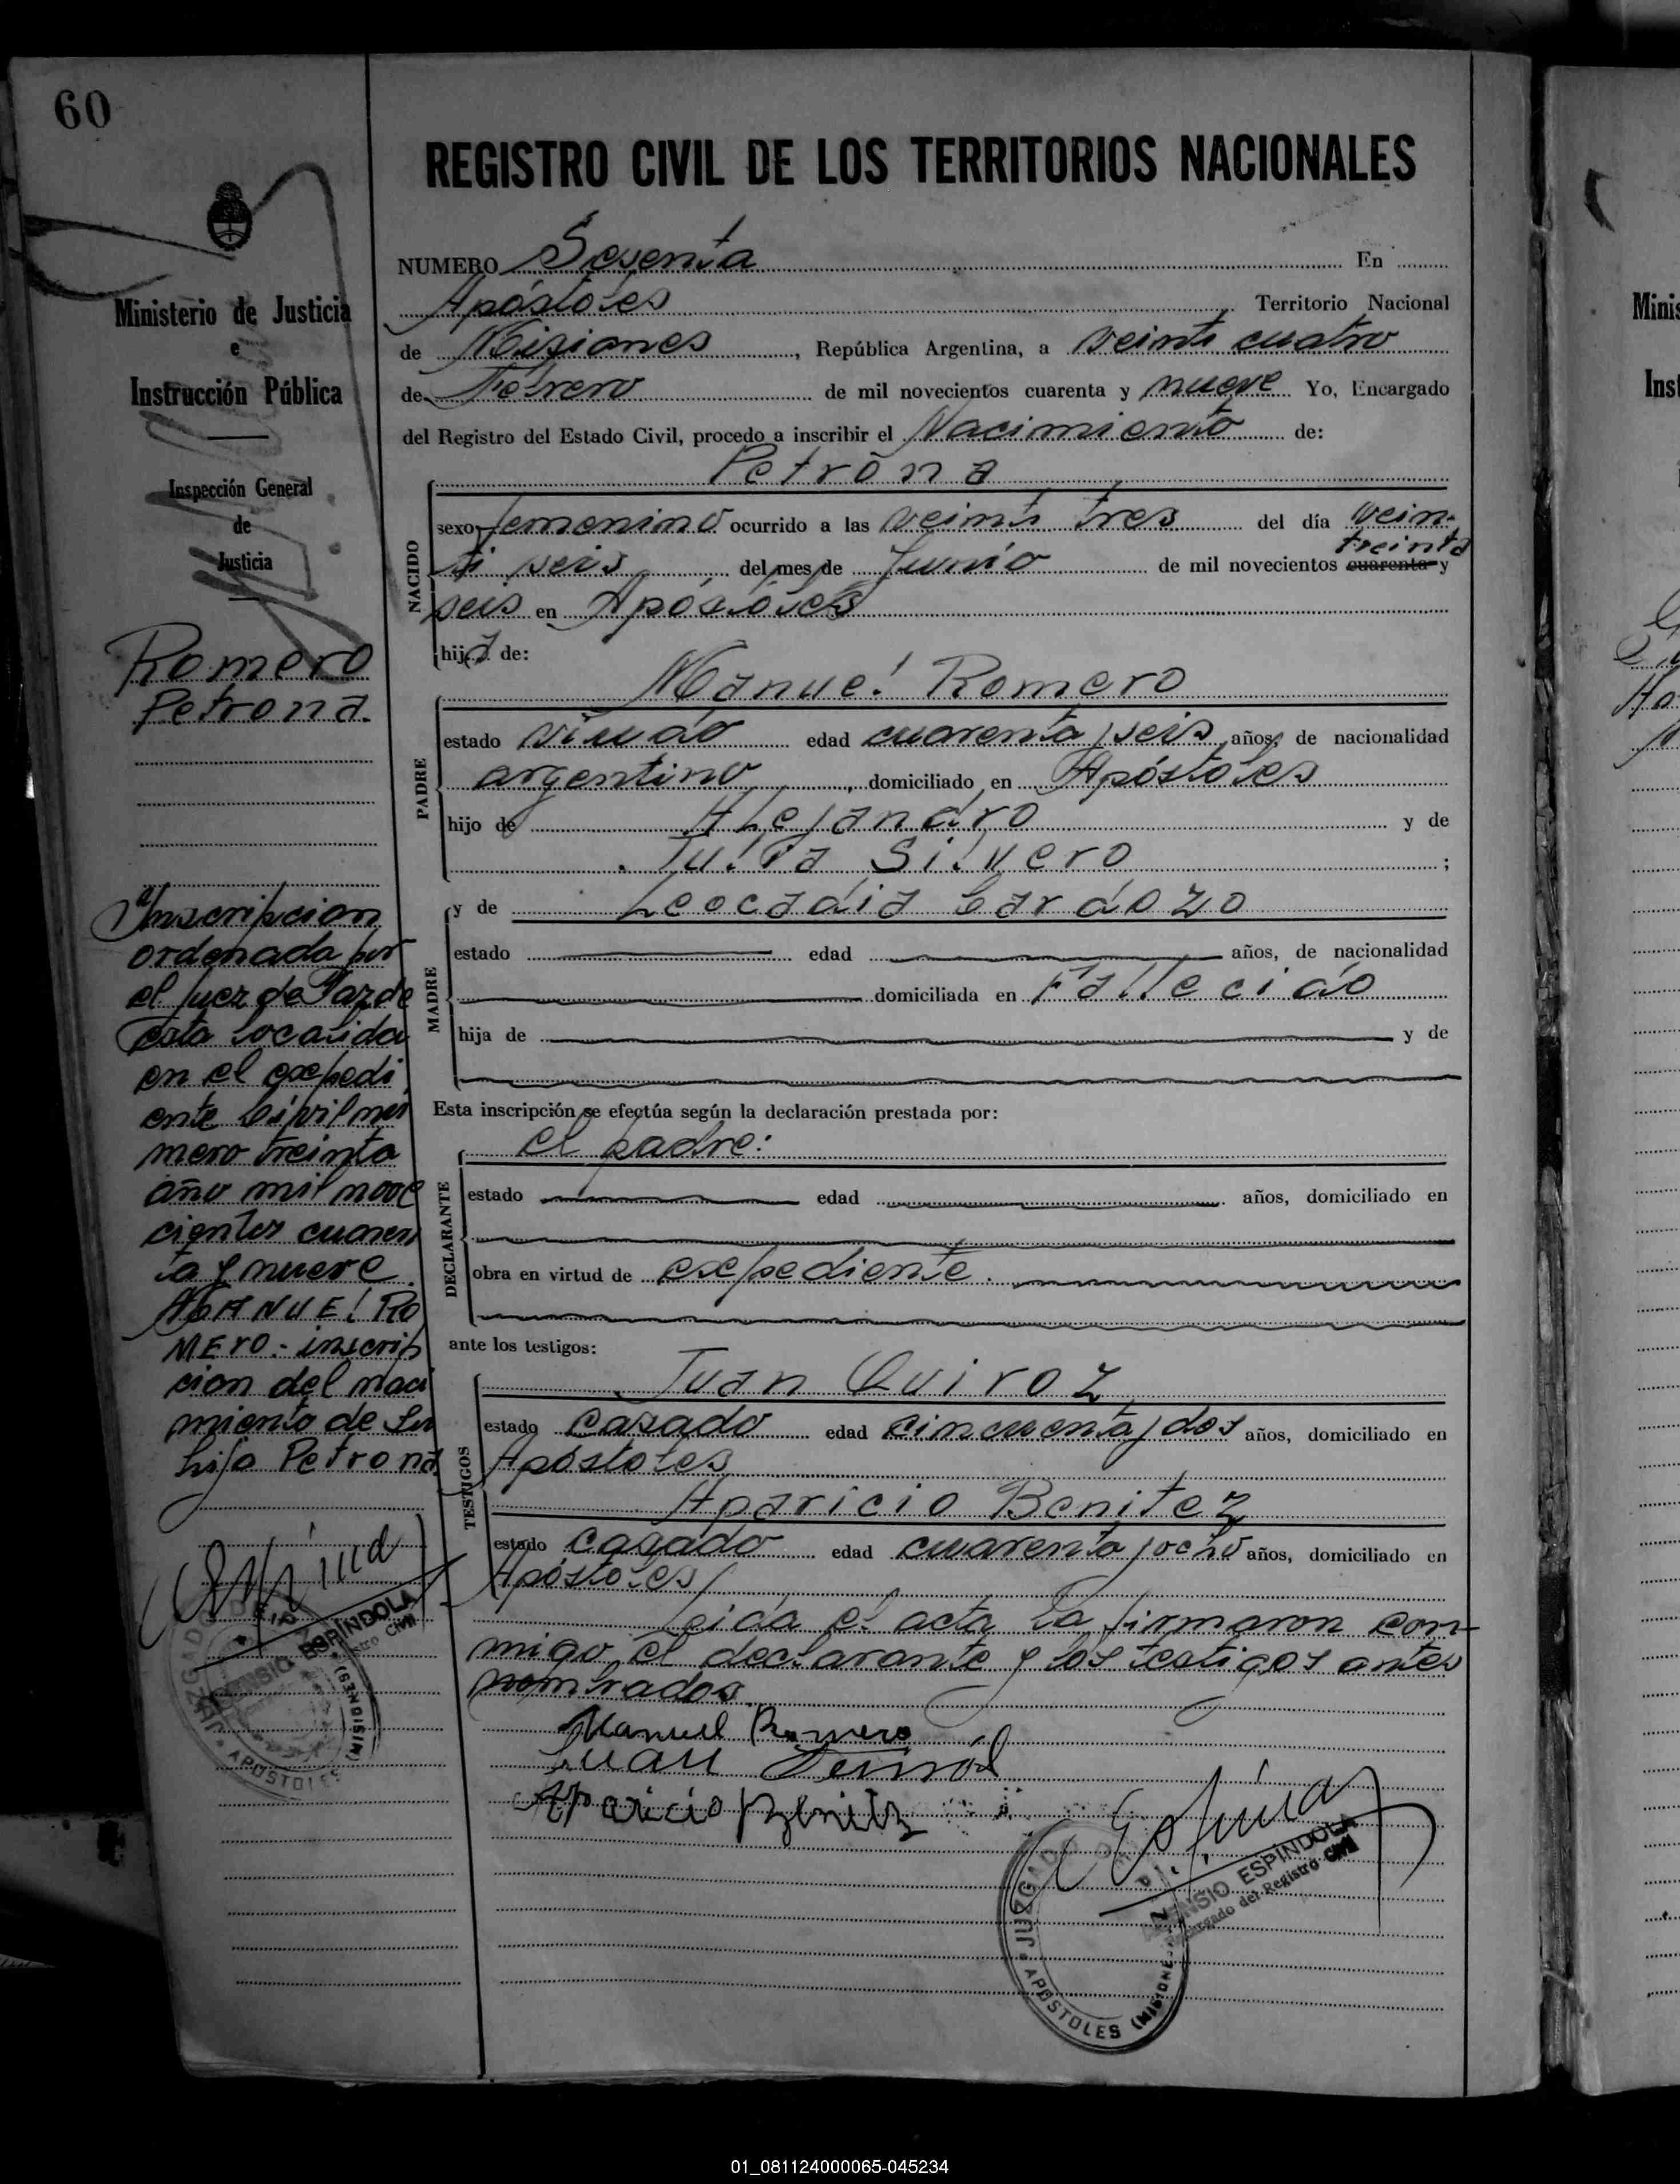 60
REGISTRO CIVIL DE LOS TERRITORIOS NACIONALES
NUMERO Sesenta En
Apóstoles Territorio Nacional
de Misiones, República Argentina, a veinti cuatro
de Febrero de mil novecientos cuarenta y nueve Yo, Encargado
del Registro del Estado Civil, procedo a inscribir el Nacimiento de:
Petrona
NACIDO
sexo femenino ocurrido a las veinti tres del día vein-
treinta
ti seis del mes de Junio de mil novecientos cuarenta y
seis en Apóstoles
hija de:
Manuel Romero
PADRE
estado viudo edad cuarenta y seis años, de nacionalidad
argentino, domiciliado en Apóstoles
hijo de Alejandro y de
Julia Silvero ;
MADRE
y de Leocadia Cardozo
estado edad años, de nacionalidad
domiciliada en Fallecido
hija de y de
Esta inscripción se efectúa según la declaración prestada por:
DECLARANTE
el padre:
estado edad años, domiciliado en
obra en virtud de expediente.
ante los testigos:
TESTIGOS
Juan Quiroz
estado casado edad cincuenta y dos años, domiciliado en
Apóstoles
Aparicio Benitez
estado casado edad cuarenta y ocho años, domiciliado en
Apóstoles
Leida el acta la firmaron con-
migo, el declarante y los testigos antes
nombrados.
Manuel Romero
Juan
Aparicio Benitez
ESPÍNDOLA
Encargado del Registro Civil
JUZGADO D
APOSTOLES (MISIONES)
Ministerio de Justicia
e
Instrucción Pública
Inspección General
de
Justicia
Romero
Petrona.
Inscripcion
ordenada por
el Juez de Paz de
esta localida
en el expedi
ente Civil nú
mero treinta
año mil nove
cientos cuaren
ta y nueve.
MANUEL RO
MERO.- inscrip
cion del naci
miento de su
hija Petrona
ESPÍNDOLA
JUZGADO DE
APOSTOLES (MISIONES)
Minis
Inst
01_081124000065-045234